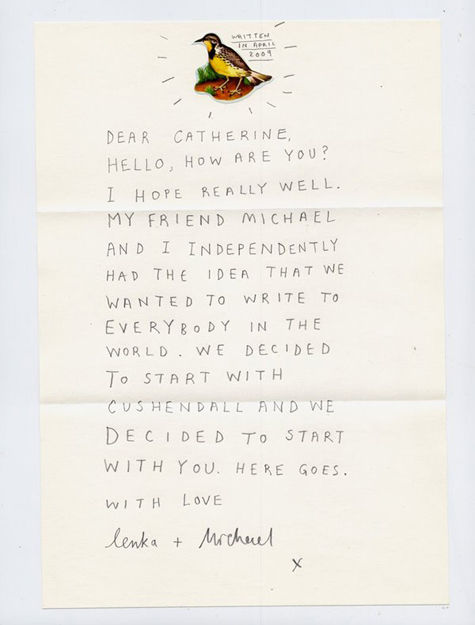 WRITTEN
IN APRIL
2009
DEAR CATHERINE,
HELLO, HOW ARE YOU?
I HOPE REALLY WELL.
MY FRIEND MICHAEL
AND I INDEPENDENTLY
HAD THE IDEA THAT WE
WANTED TO WRITE TO
EVERYBODY IN THE
WORLD. WE DECIDED
TO START WITH
CUSHENDALL AND WE
DECIDED TO START
WITH YOU. HERE GOES.
WITH LOVE
lenka + Michael
x